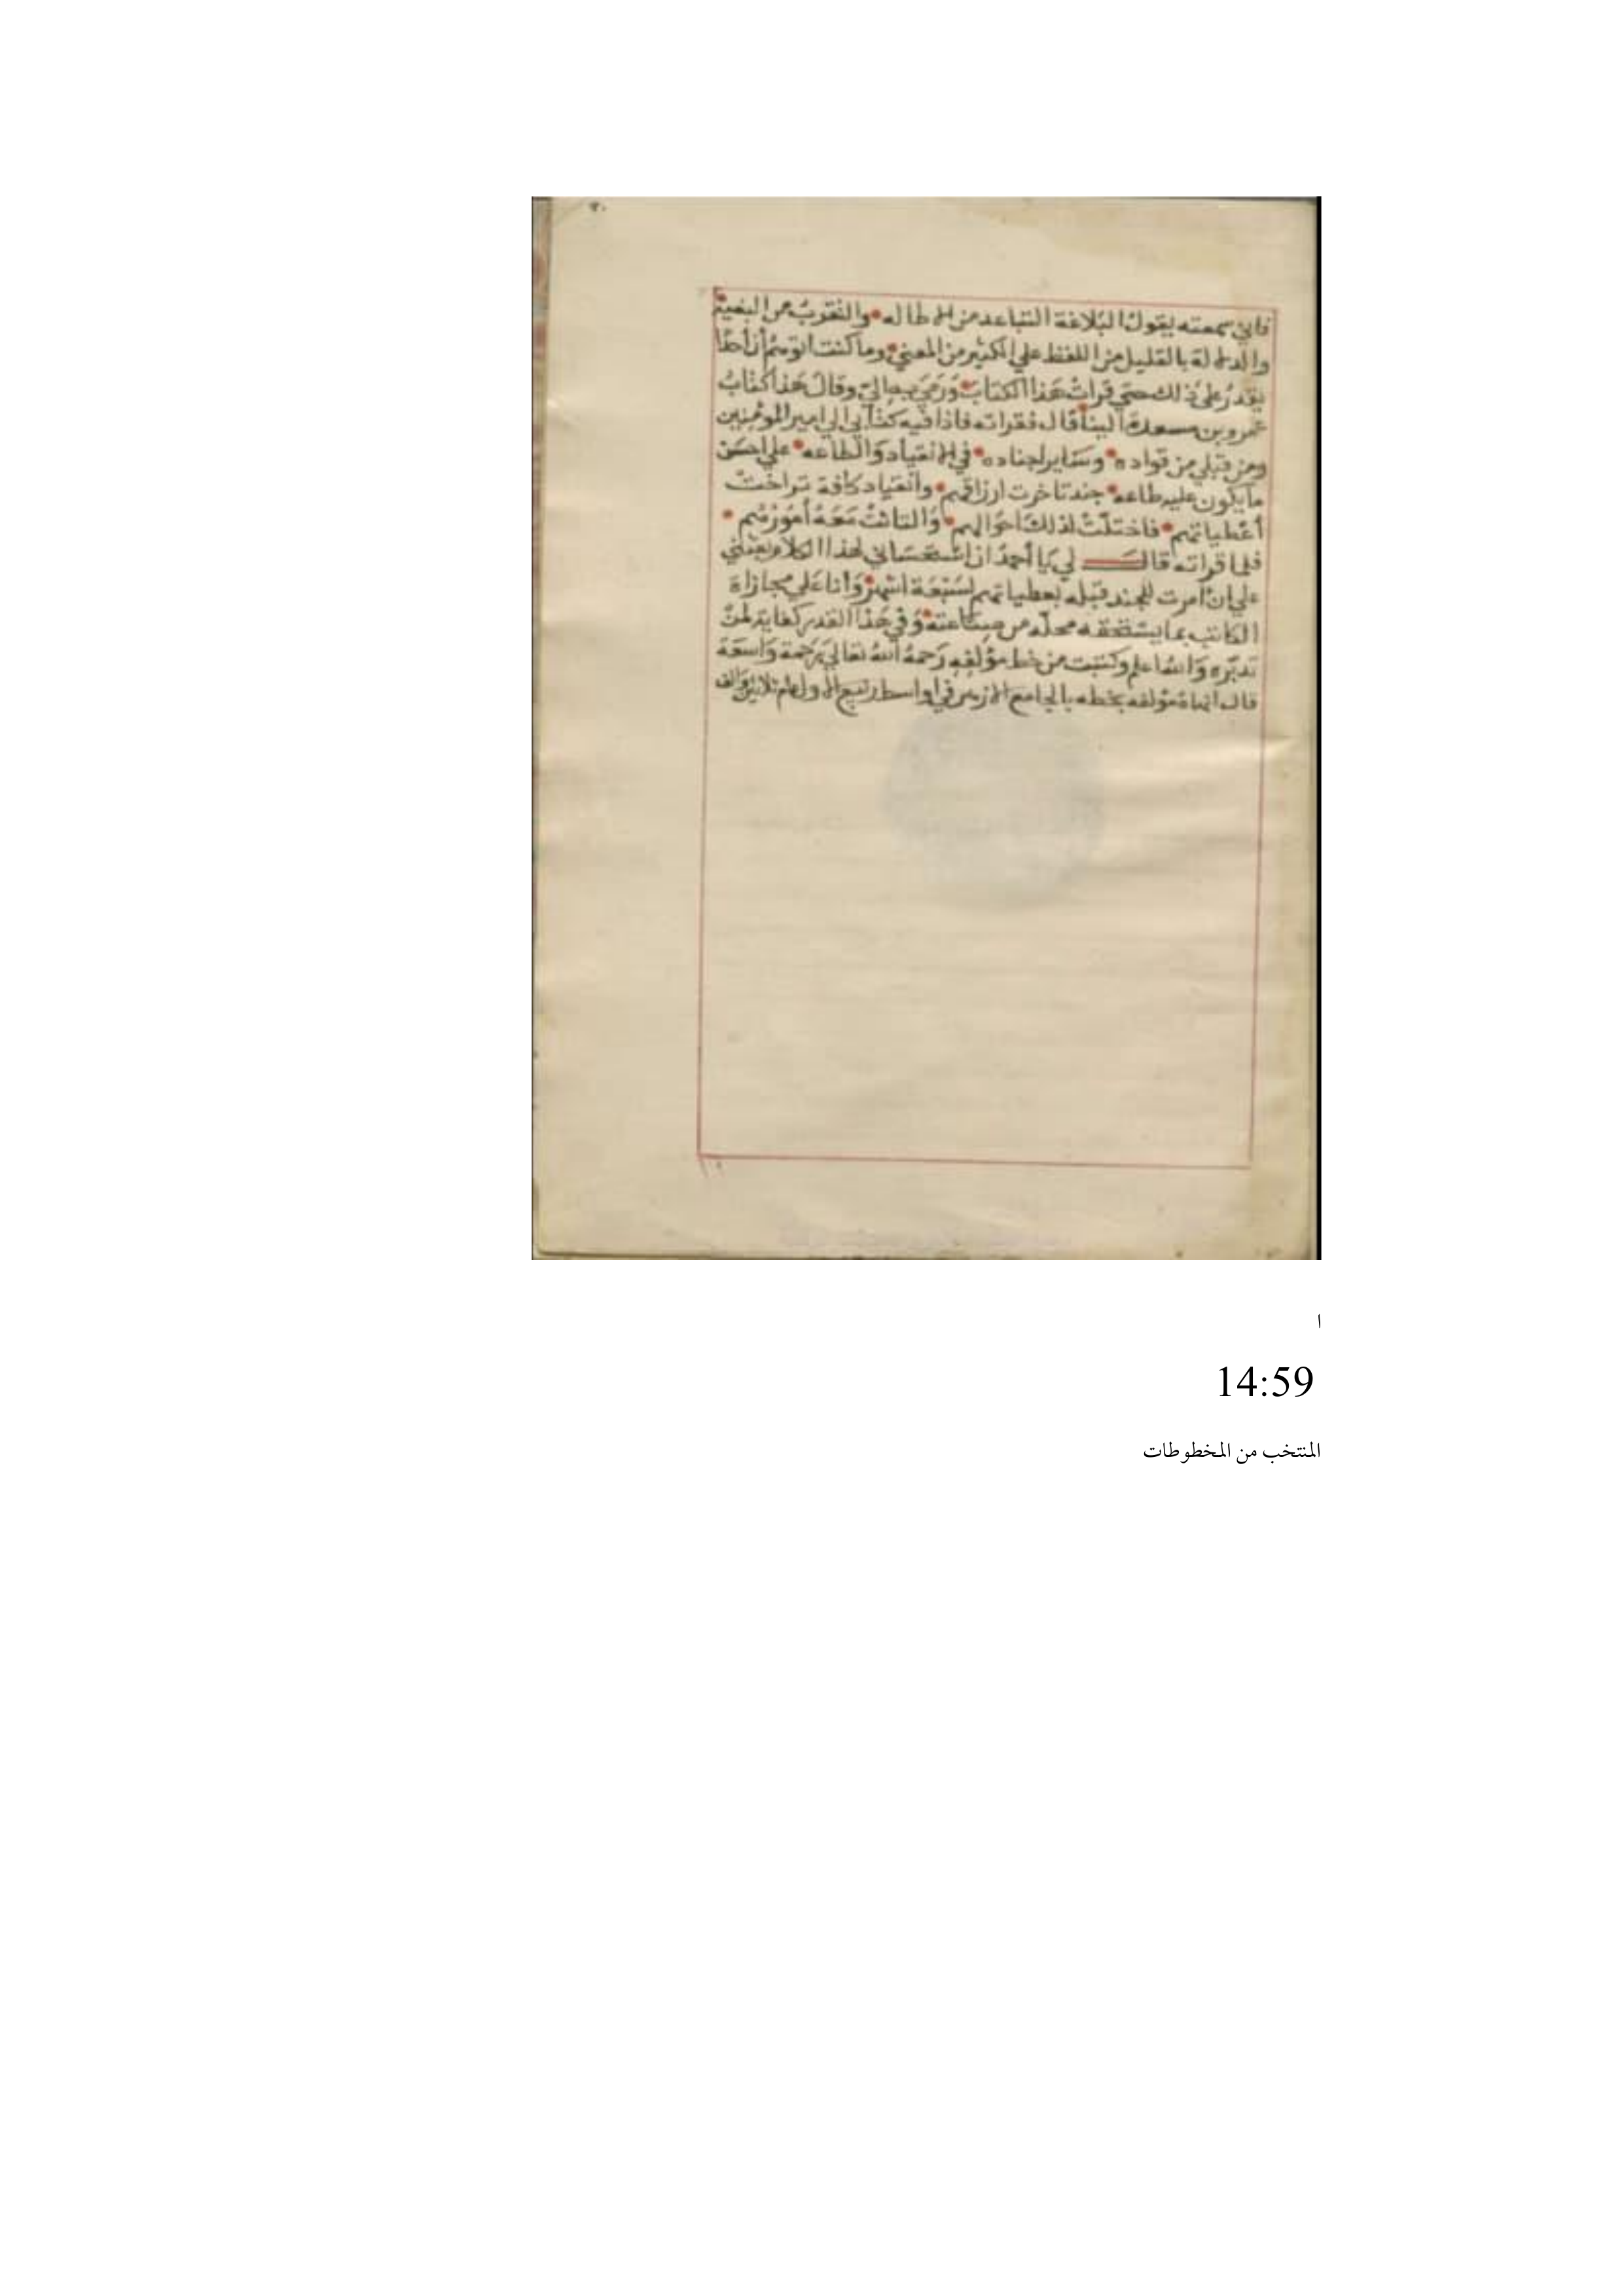 ٢٠
فاني سمعته يقول البلاغة التباعد من الاطاله والتقرب من البغية
والدلالة بالقليل من اللفظ علي الكثير من المعني وما كنت اتوهم أن أحدًا
يقدر على ذلك حتي قرات هذا الكتاب ورمي به إلي وقال هذا كتاب
عمرو بن مسعدة الينا قال فقراته فاذا فيه كتابي الي امير المؤمنين
ومن قبلي من قواده وسائر اجناده في الانقياد والطاعه علي احسن
ما يكون عليه طاعه جند تاخرت ارزاقهم وانقياد كافة تراخت
أعطياتهم فاختلت لذلك احوالهم والتاثت معه أمورهم
فلما قراته قال لي يا أحمد ان استحساني لهذا الكلام بعثني
علي ان امرت للجند قبله بعطياتهم لسبعة اشهر وأنا علي مجازاة
الكاتب بما يستحقه محله من صناعته وفي هذا القدر كفاية لمن
تدبره والله اعلم وكتبت من خط مؤلفه رحمه الله تعالي رحمة واسعة
قال انهاه مؤلفه بخطه بالجامع الازهر في اواسط ربيع الاول عام ثلاثين والف
ا
14:59
المنتخب من المخطوطات